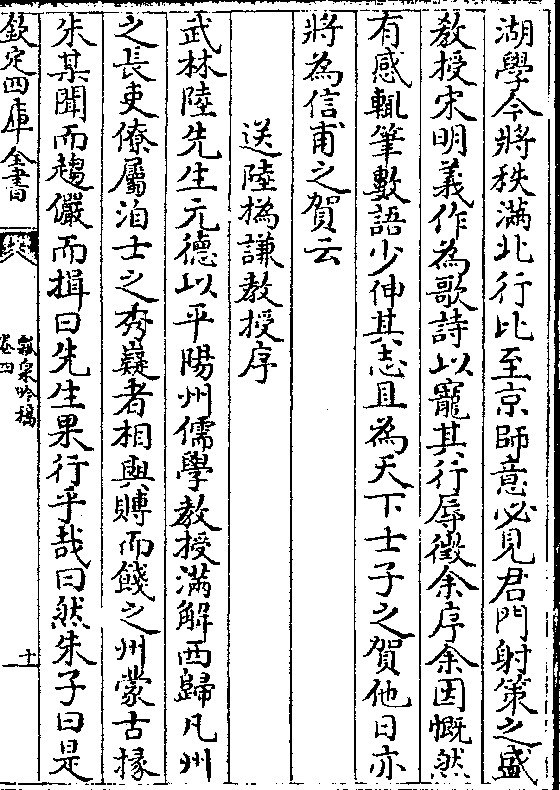 湖學今將秩滿北行比至京師意必見君門射策之盛
教授宋明義作為歌詩以寵其行辱徵余序余因慨然
有感輒筆數語少伸其志且為天下士子之賀他日亦
將為信甫之賀云
送陸撝謙教授序
武林陸先生元德以平陽州儒學教授滿解西歸凡州
之長吏僚屬洎士之秀嶷者相與賻而餞之州蒙古掾
朱某聞而趨儼而揖曰先生果行乎哉曰然朱子曰是
欽定四庫全書
瓢泉吟稿
卷四
十